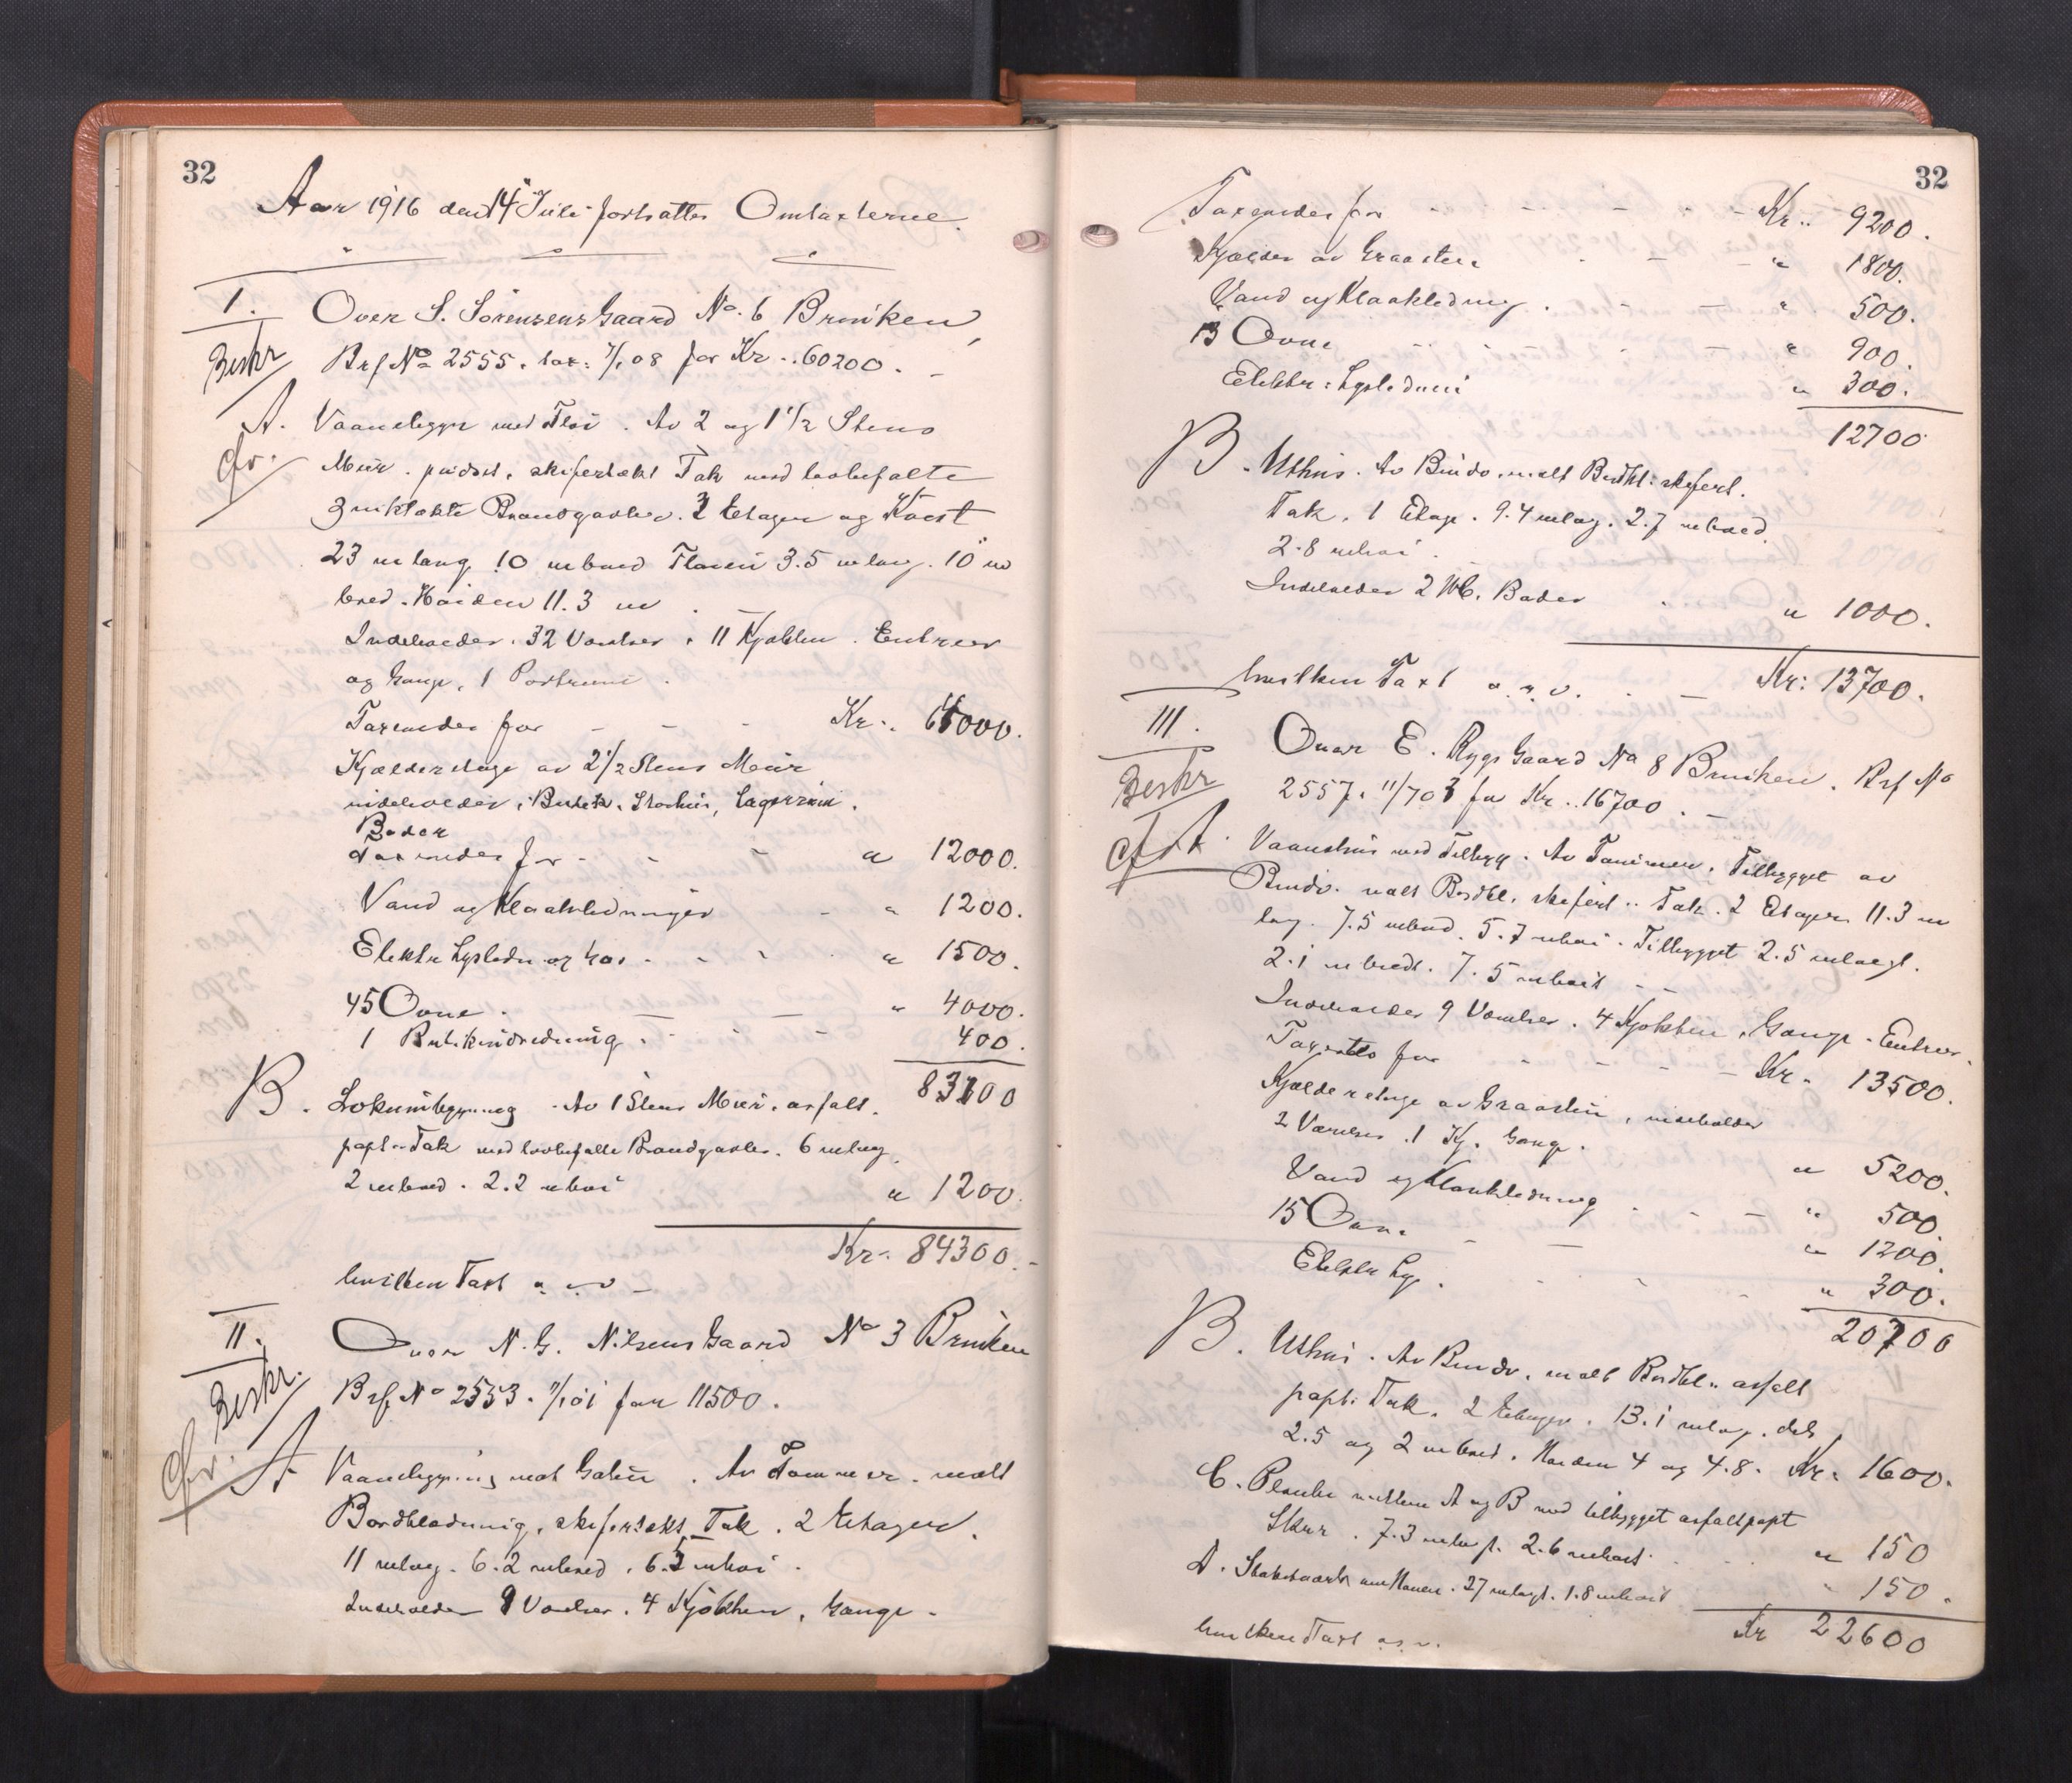 32
Aar 1916 den 14 Juli fortsattes Omtaxterne.
I. Over S. Sörensens Gaard No. 6 Brinken,
Beskr Brf No 2555. tax: 7/1 08 for Kr. 60200. -
A. Vaanebygn med Flöi. Av 2 og 1 1/2 Stens
Cfr. Mur. pudset, skifertækt Tak med lovbefalte
zinktækte Brandgavler. 3 Etager og Kvist
23 m lang 10 m bred Flöien 3.5 m lang. 10 m
bred. Höiden 11.3 m
Indeholder. 32 Værelser. 11 Kjökken. Entreer
og Gange, 1 Portrum.
Taxeredes for - - - Kr. 64000.
Kjælderetage av 2 1/2 Stens Mur
indeholder, Butik, , Lagerrum.
Boder
taxeredes for - - - " 12000.
Vand og Kloakledninger - " 1200.
Elektr Lysledn og Gas - - - " 1500.
45 Ovne. - - " 4000.
1 Butikindredning. 400.
83100
B. Lokumbygning. Av 1 Stens Mur. asfalt.
papt. Tak med lovbefalte Brandgavler. 6 m lang
2 m bred. 2.2 m höi " 1200.
Kr. 84300.-
hvilken Taxt o. s. v -
II. Over N. G. Nilsens Gaard No 3 Brinken
Beskr. Brf. No 2553. 7/1 01 for 11500.
Cfr. A Vaanebygning mot Gaten. Av Tömmer. malt
Bordklædning, skifertækt Tak. 2 Etager.
11 m lang. 6.2 m bred. 6.3 m höi.
Indeholder 9 Værelser. 4 Kjökken, Gange.
32
Taxeredes for - - - - - Kr. 9200.
Kjælder av Graasten - - - " 1800.
Vand og Kloakledning. - - " 500.
13 Ovne " 900.
Elektr: Lysledning " 300.
12700
B. Uthus. Av Bindv. malt Bordkl: skifert.
Tak. 1 Etage. 9.4 m lang. 2.7 m bred.
2.8 m höi.
Indeholder 2 WC. Boder " 1000.
hvilken Taxt o. s. v. - Kr: 13700.
III. Over E. Rygs Gaard No 8 Brinken. Brf No
Beskr 2557. 11/7 03 for Kr. 16700. -
Cfr A. Vaanehus med Tilbygg. Av Tömmer. Tilbygget av
Bindv. malt Bordkl. skifert. Tak. 2 Etager. 11.3 m
lang. 7.5 m bred. 5.7 m höi. Tilbygget 2.5 m langt.
2.1 m bredt. 7.5 m höit - -
Indeholder 9 Værelser. 4 Kjökken. Gange. Entreer.
Taxeredes for - - - - Kr. 13500.
Kjælderetage av Graasten, indeholder
2 Værelser. 1 Kj. Gang. " 5200.
Vand og Kloakledning - - - " 500.
15 Ovne. - - " 1200.
Elektr Lys. - - - " 300.
20700
B. Uthus. Av Bindv. malt Bordkl. asfalt
papt: Tak. 2 Etager. 13.1 m lang. dels
2.5 og 2 m bred. Höiden 4 og 4.8. Kr. 1600.
C. Planke mellem A og B med tilbygget asfaltpapt
Skur. 7.3 m langt. 2.6 m höit. " 150
D. Stakitværk om Haven. 27 m langt. 1.8 m höit " 150.
hvilken Taxt o.s.v. Kr 22600